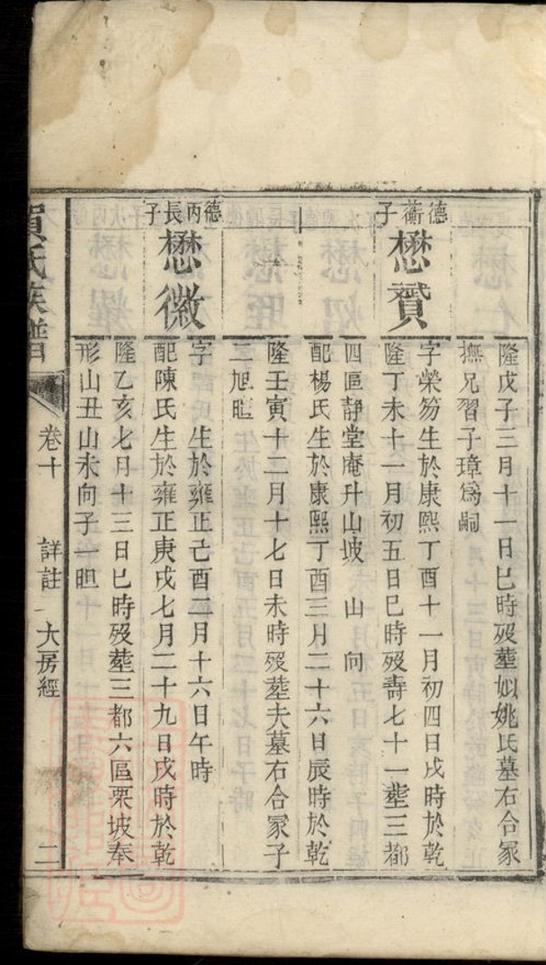 隆戊子三月十一日巳時歿塟姒姚氏墓右合冢
撫兄習子璋爲嗣
德蘅子
懋贇
字榮笏生於康熙丁酉十一月初四日戌時於乾
隆丁未十一月初五日巳時歿壽七十一塟三都
四區靜堂庵升山坡 山 向
配楊氏生於康熙丁酉三月二十六日辰時於乾
隆壬寅十二月十七日未時歿塟夫墓右合冢子
二旭暄
德丙長子
懋微
字 生於雍正己酉二月十六日午時
配陳氏生於雍正庚戌七月二十九日戌時於乾
隆乙亥七月十三日巳時歿塟三都六區栗坡奉
形山丑山未向子一昛
賀氏族譜
卷十
詳註
大房經
二